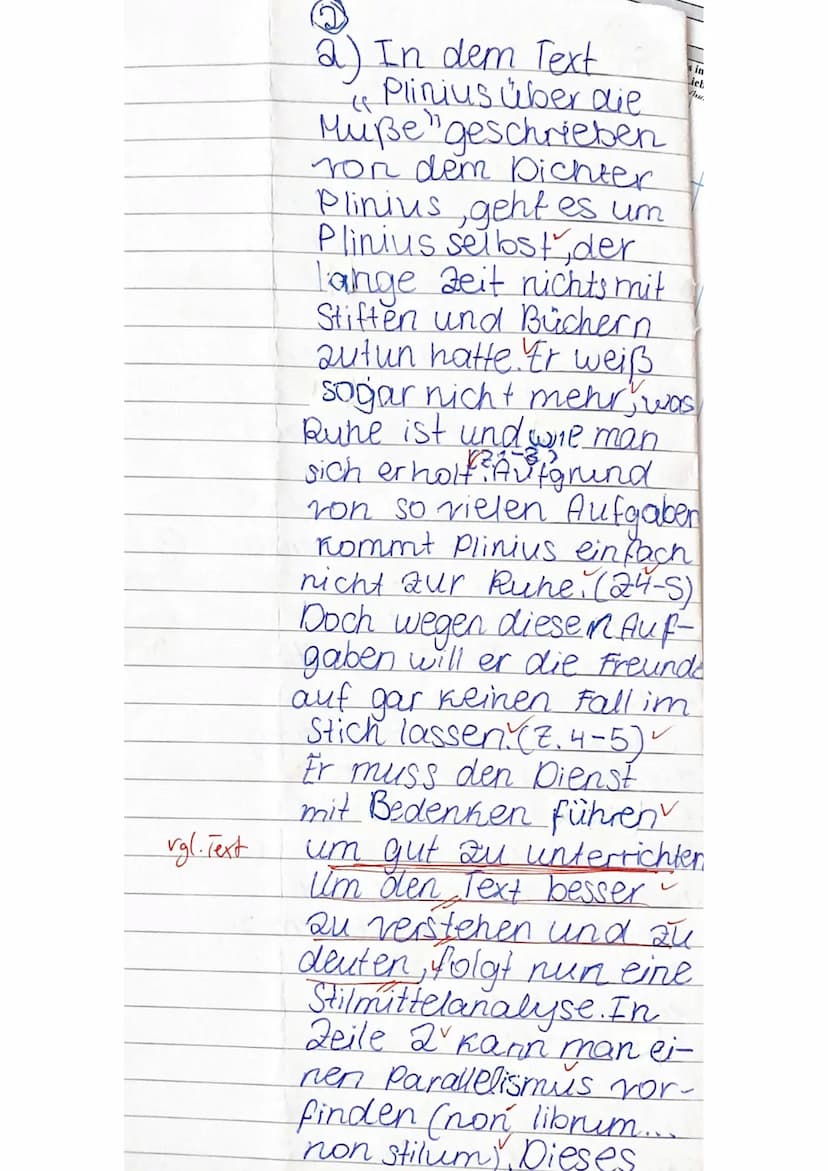 ②
a) In dem Text
"Plinius über die
Muße" geschrieben
von dem Dichter
Plinius, geht es um
Plinius selbst, der
lange Zeit nichts mit
Stiften und Büchern
zutun hatte. Er weiß
sogar nicht mehr, was
Ruhe ist und wie man
(Z.1-3)
sich erholt. Aufgrund
von so vielen Aufgaben
kommt Plinius einfach
nicht zur Ruhe. (Z4-5)
Doch wegen diesen Auf-
gaben will er die Freunde
auf gar keinen Fall im
Stich lassen. (Z. 4-5)
Er muss den Dienst
mit Bedenken führen
vgl. Text
um gut zu unterrichten
Um den Text besser
zu verstehen und zu
deuten, folgt nun eine
Stilmittelanalyse. In
Zeile 2 kann man ei-
nen Parallelismus vor-
finden (non librum...
non stilum). Dieses